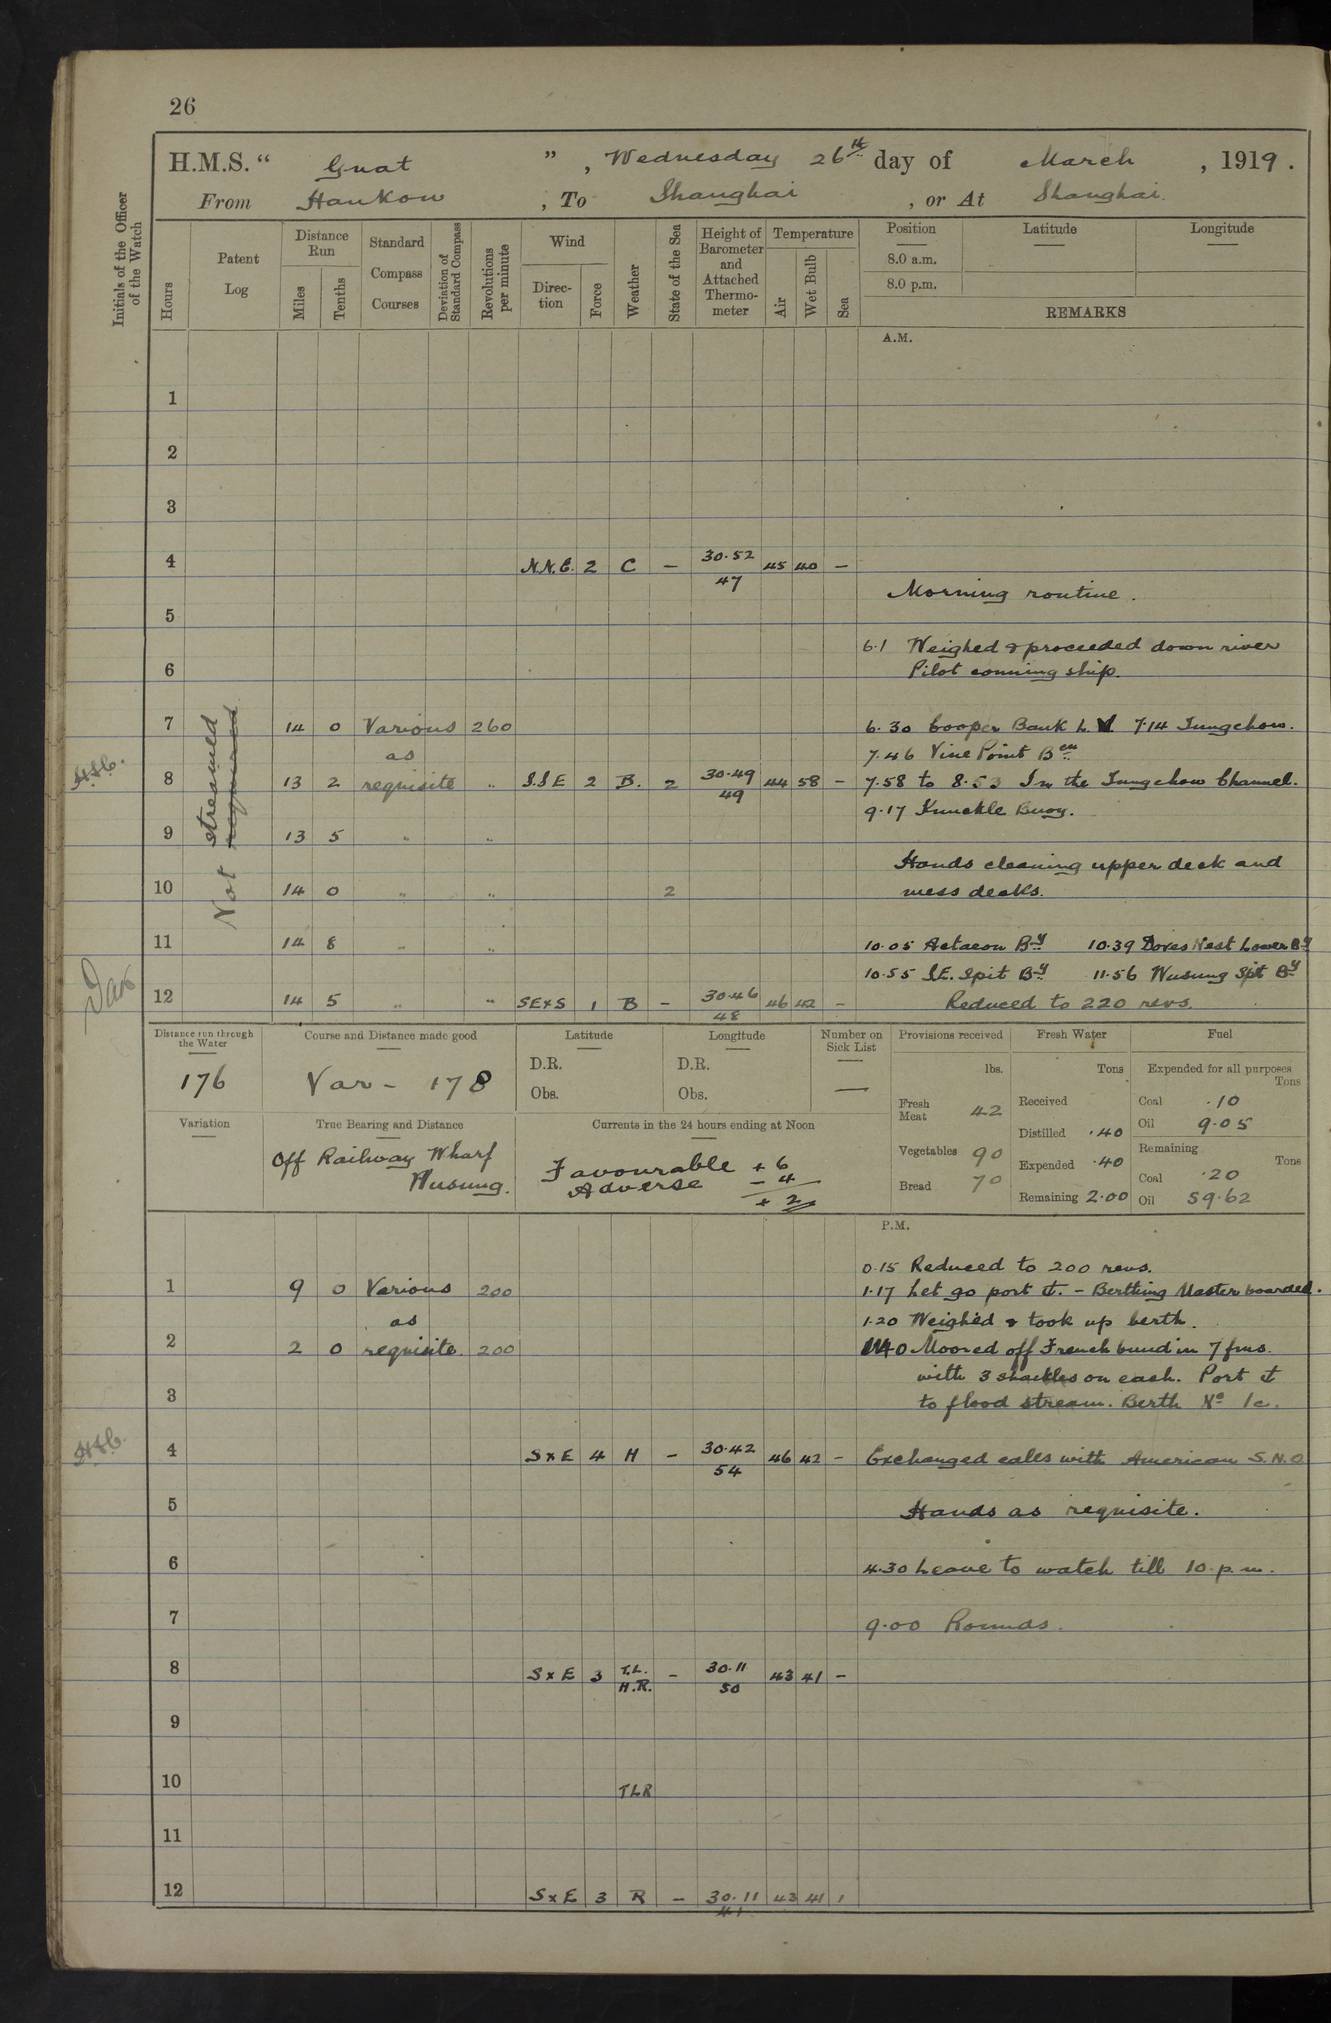 26
H.M.S. " Gnat ", Wednesday 26th day of March, 1919.
From Hankow, To Shanghai, or At Shanghai.
Initials of the Officer of the Watch
Hours
Patent Log
Distance Run
Miles
Tenths
Standard Compass Courses
Deviation of Standard Compass
Revolutions per minute
Wind
Direction
Force
Weather
State of the Sea
Height of Barometer and Attached Thermometer
Temperature
Air
Wet Bulb
Sea
Position Latitude Longitude
8.0 a.m.
8.0 p.m.
REMARKS
A.M.
1
2
3
4 N.N.E. 2 C – 30.52 45 40 –
47
Morning routine.
5
6.1 Weighed & proceeded down river
6 Pilot conning ship.
Not streamed required
7 14 0 Various 260 6.30 Cooper Bank L.V. 7.14 Tungchow.
as 7.46 Vine Point Bcn
8 13 2 requisite " S.S.E 2 B. 2 30.49 44 58 – 7.58 to 8.53 In the Tungchow Channel.
49
9.17 Knuckle Buoy.
9 13 5 " "
Hands cleaning upper deck and
10 14 0 " " 2 mess decks.
11 14 8 " " 10.05 Actaeon By 10.39 Doves Nest Lower By
10.55 S.E. Spit By 11.56 Wusung Spit By
12 14 5 " " SExS 1 B – 30.46 46 42 – Reduced to 220 revs.
48
Distance run through the Water
176
Course and Distance made good
Var – 178
Latitude
D.R.
Obs.
Longitude
D.R.
Obs.
Number on Sick List
—
Provisions received
lbs.
Fresh Meat 42
Vegetables 90
Bread 70
Fresh Water
Tons
Received
Distilled .40
Expended .40
Remaining 2.00
Fuel
Expended for all purposes
Tons
Coal .10
Oil 9.05
Remaining
Tons
Coal .20
Oil 59.62
Variation
True Bearing and Distance
Off Railway Wharf
Wusung.
Currents in the 24 hours ending at Noon
Favourable + 6
Adverse – 4
+ 2
P.M.
0.15 Reduced to 200 revs.
1 9 0 Various 200 1.17 Let go port ⚓. – Berthing Master boarded.
as 1.20 Weighed & took up berth.
2 2 0 requisite. 200 1.40 Moored off French bund in 7 fms.
with 3 shackles on each. Port ⚓
3 to flood stream. Berth No 1c.
4 SxE 4 H – 30.42 46 42 – Exchanged calls with American S.N.O
54
5 Hands as requisite.
6 4.30 Leave to watch till 10 p.m.
7 9.00 Rounds.
8 SxE 3 T.L. – 30.11 43 41 –
H.R. 50
9
10 TLR
11
12 SxE 3 R – 30.11 43 41 1
41